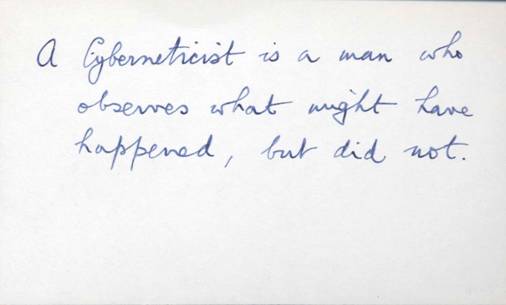 A Cyberneticist is a man who
observes what might have
happened, but did not.